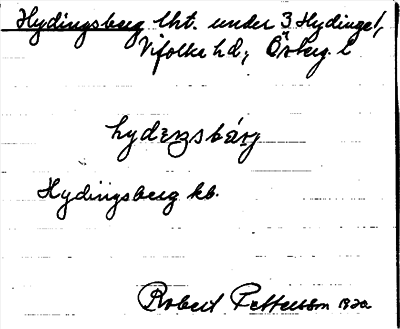 Hydingsberg lht. under 3 Hydinge!,
Vifolka hd, Österg. l
Hydingsberg kb.
Robert Pettersson 1920